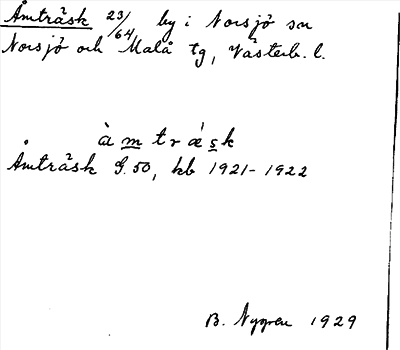 Åmträsk 23/64, by i Norsjö sn
Norsjö och Malå tg, Västerb. l.
àmtræ̀sk
Åmträsk G. 50, kb 1921-1922
B. Nygren 1929